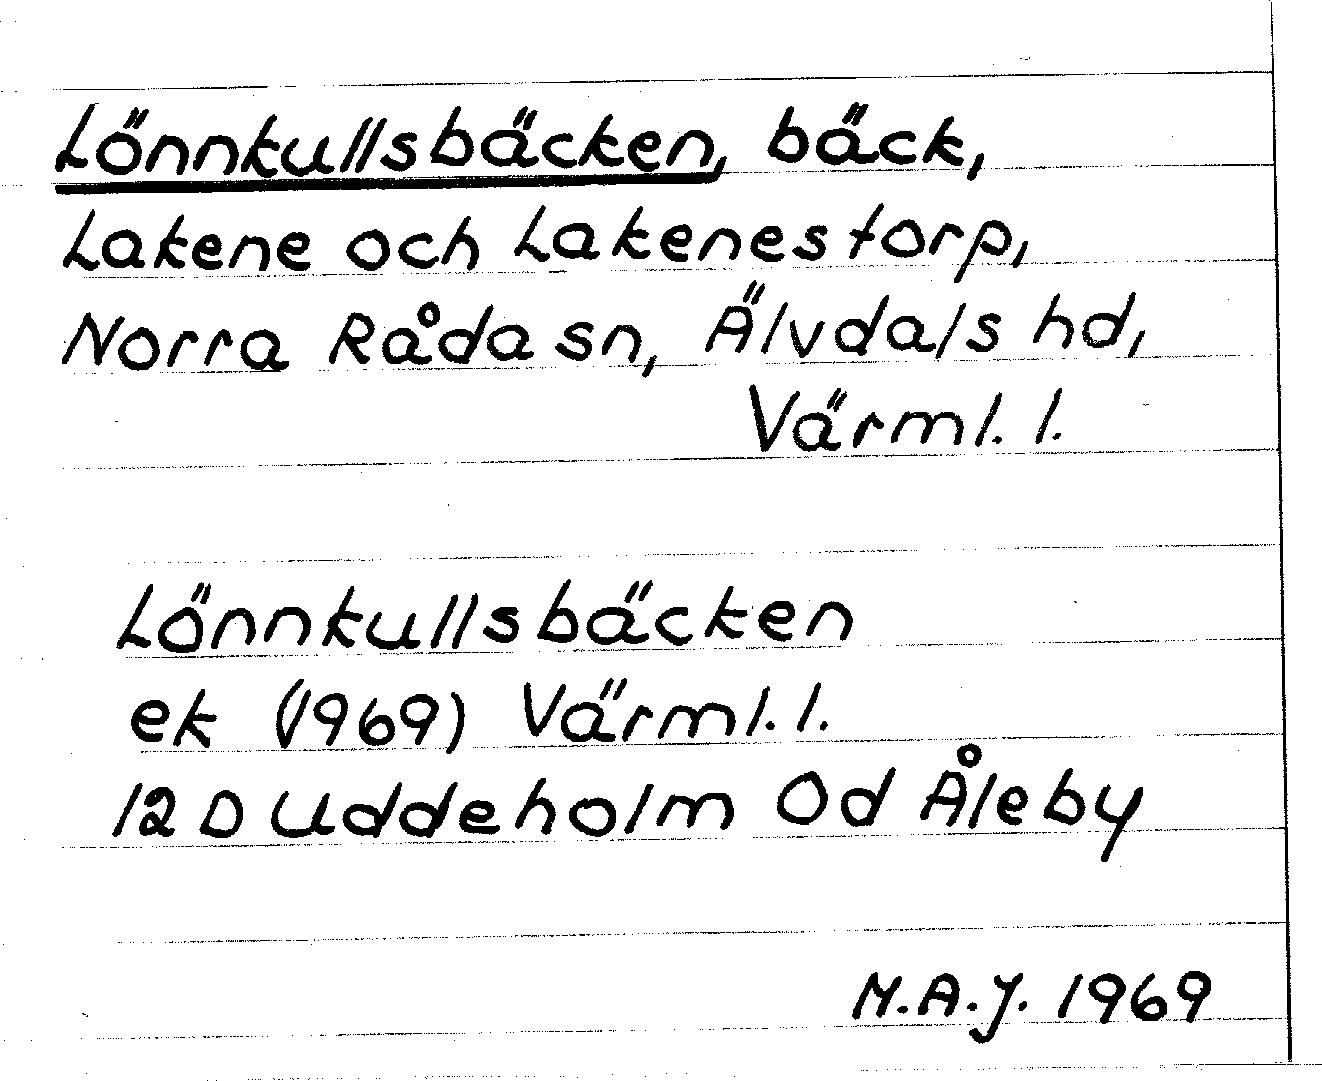 Lönnkullsbäcken, bäck,
Lakene och Lakenestorp,
Norra Råda sn, Älvdals hd,
Värml. l.
Lönnkullsbäcken
ek (1969) Värml. l.
12D Uddeholm 0d Åleby
M.A.J. 1969